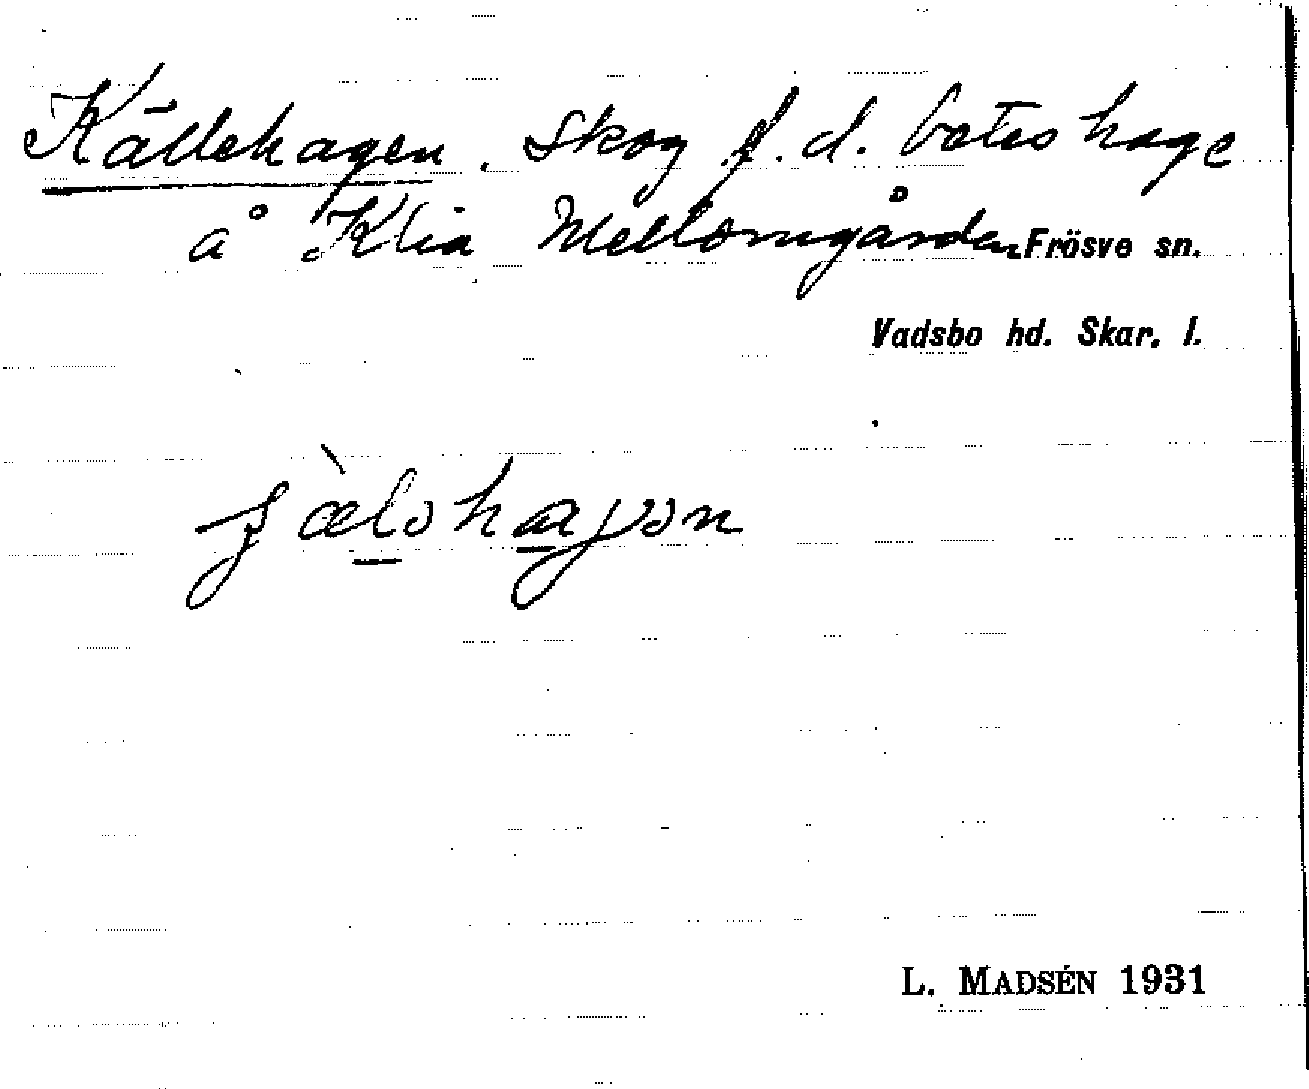 Källehagen. Skog f.d. beteshage
å Klia Mellomgården Frösve sn.
Vadsbo hd. Skar. l.
L. MADSÉN 1931